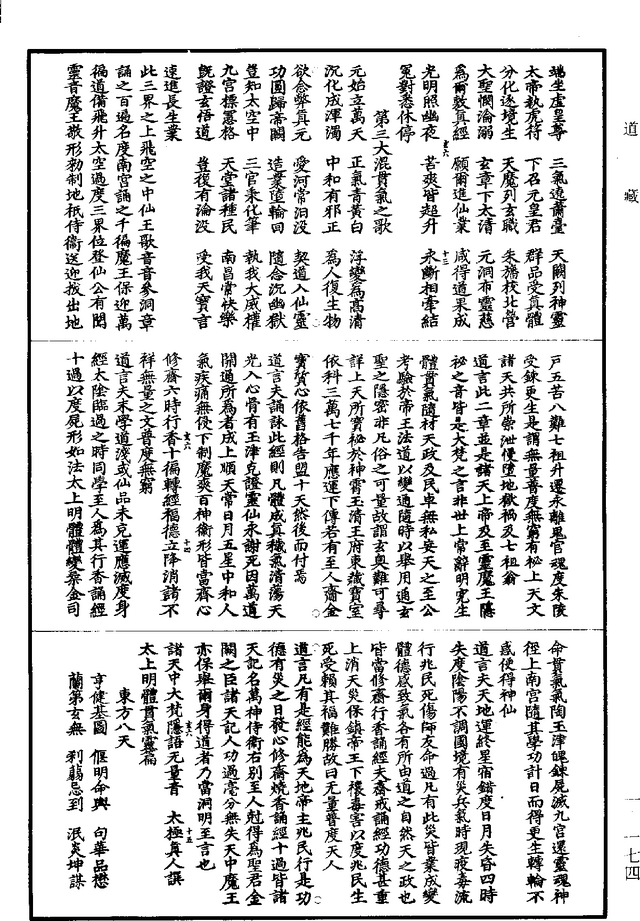 道藏
端坐虛皇尊　三氣逸蕭臺　天關列神靈
太帝執虎符　下召元皇君　群品受真體
分化逐境生　天魔列玄職　朱旛校北營
大聖憫淪溺　玄章下太清　元洞布靈慈
爲爾敷真經　顧爾造仙業　咸得道果成
光明照幽夜　苦爽皆超升　永斷相牽結
冤對悉休停
第三大混貫氣之歌
元始立萬天　正氣青黃白　浮變爲高清
沉化成渾濁　中和有邪正　爲人復生物
欲念弊真元　愛河常汩沒　契道入仙靈
功圓歸帝闕　造業墮輪回　隨念沉幽獄
豈知太空中　三官秉化筆　執我大威權
九宮標惡格　天堂諸種民　南昌常快樂
既證玄悟道　豈復有淪沒　受我天寶言
速進長生業
此三界之上飛空之中仙王歌音音參洞章
誦之百過名度南宮誦之千徧魔王保迎萬
徧道備飛升太空過度三界位登仙公有聞
靈音魔王敬形勑制地祇侍衛送迎拔出地
戶五苦八難七祖升還永離鬼官魂度朱陵
受鍊更生是謂無量普度無窮有祕上天文
諸天共所崇泄慢墮地獄禍及七祖翁
道言此二章並是諸天上帝及至靈魔王隱
祕之音皆是大梵之言非世上常辭明完生
體貫氣隨材天政及民卓無私妄天之至公
考驗於帝王法道以變通隨時以舉用通玄
聖之隱密非凡俗之可量故謂玄奧難可尋
詳上天所寶祕於神霄玉清王府東識寶室
依科三萬七千年應運下傳若有至人齎金
寶質心依舊格告盟十天然後而付焉
道言夫誦詠此經則凡體成真穢氣清蕩天
光入心骨有玉津克證靈仙永謝死因萬道
開通所爲者成上順天常日月五星中和人
氣疾痛無侵下制魔爽百神衛形皆當齊心
修齋六時行香十徧轉經福德立降消諸不
祥無量之文普度無窮
道言夫末學道淺或仙品未克運應滅度身
經太陰臨過之時同學至人爲其行香誦經
十過以度屍形如法太上明體體變槃金司
命貫氣氣陶王津魄鍊屍滅九宮還靈魂神
徑上南宮隨其學功計日而得更生轉輪不
惑使得神仙
道言夫天地運終星宿錯度日月失昏四時
失度陰陽不調國境有災兵氣時現疫毒流
行兆民死傷師友命過凡有此災皆業成變
體德感致氣各有所由道之自然天之政也
皆當修齋行香誦經夫齋戒誦經功德甚重
上消天災保鎮帝王下禳毒害以度兆民生
死受賴其福難勝故曰無量普度天人
道言凡有是經能爲天地帝主兆民行是功
德有災之日發心修齋燒香誦經十過皆諸
天記名萬神侍衛右別至人尅得爲聖君金
闕之臣諸天記人功過毫分無失天中魔王
亦保舉爾身得道者乃當洞明至言也
諸天中大梵隱語無量音　太極真人譔
太上明體貫氣靈福
東方八天
亨健基圖　偃明命與　句華品懋
蘭第玄無　刹蘙忌到　泯炎坤謀
一・一七四